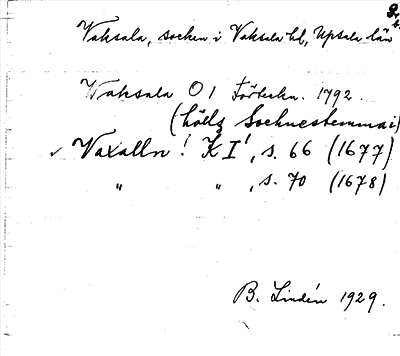 2.
Vaksala, socken i Vaksala hd, Upsala län
Waksala O I Förteckn. 1792.
(hölz Sochnestemma i
✓ Vaxalln! K I', s. 66 (1677)
" " , s. 70 (1678)
B. Lindén 1929.